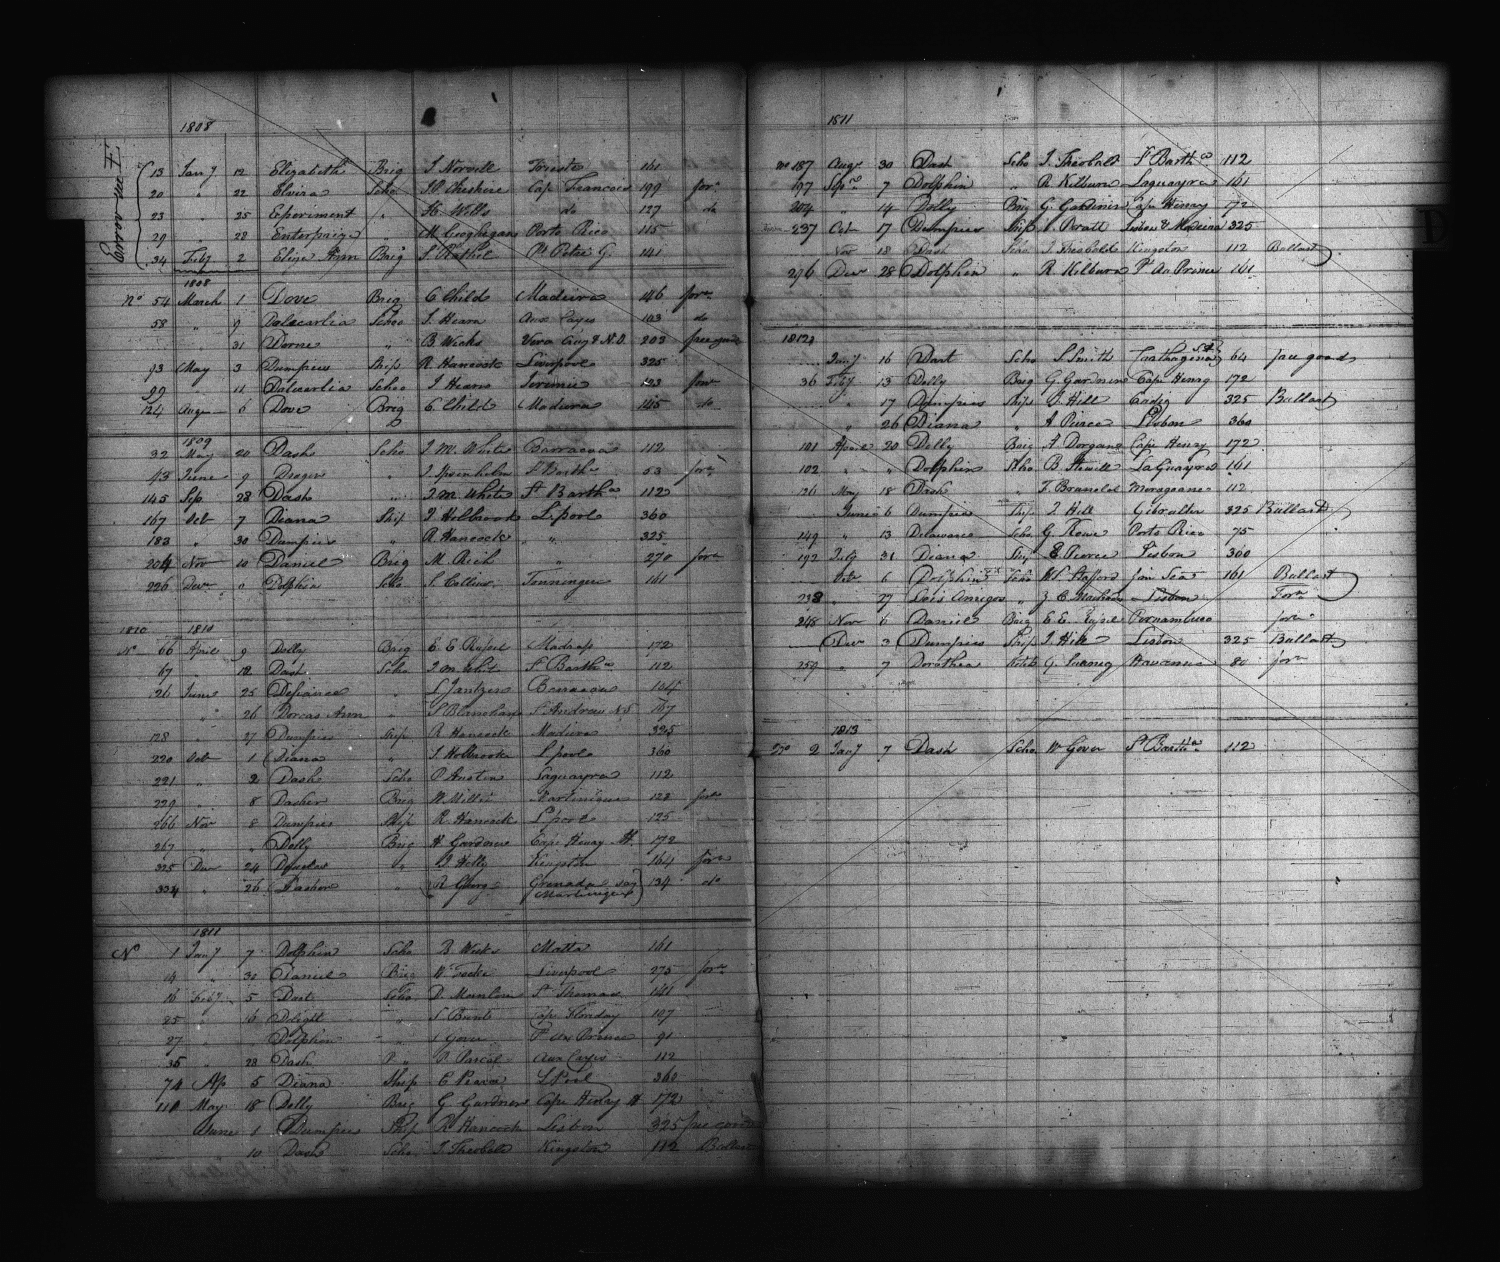 1808
13 Jany 12 Elizabeth Brig J Norvell Trieste 161
20 " 22 Elvira Scho W Cheshire Cap Francois 199 forn
23 " 25 Experiment " H Wills do 127 do
29 " 28 Enterprize " M Coghagan Porto Rico 115
34 Feby 2 Eliza Ann Brig S Rathol St Peter G. 141
Error in W F
1808
No 54 March 1 Dove Brig C Child Madeira 146 forn
58 " 9 Dalecarlia Schoo J. Hearn Aux Cayes 103 do
" 31 " B Wicks Vera Cruz & N.O. 203 free goods
93 May 3 Dumpries Ship R Hancock Liverpool 325
99 " 11 Dalecarlia Schoo J Hearn Jeremie 123 forn
124 Augu 6 Dove Brig C Child Madeira 145 do
1809
32 May 20 Dash Scho J. M. White Barracoa 112
43 June 9 " St Barths 53 forn
145 Sep 28 Dash " J. M White St Bartha 112
167 Oct 7 Diana Ship J Holbrook Lpool 360
183 " 30 Dumpries " R Hancock " " 325
204 Nov 10 Daniel Brig M. Rich " 270 forn
226 Decr " Dolphin Scho S. Collins Tonningen 161
1810 1810
No 66 April 9 Dolly Brig E. E. Russel 172
67 " 12 Dash Scho J. M. Whit St Bartha 112
26 June 25 Defiance " L Jantzen 104
" 26 Dorcas Ann " S Blanchard St Andrews NS 167
128 " 27 Dumpries Ship R Hancock Madeira 325
220 Octr 1 Diana " J. Holbrook Lpool 360
221 " 2 Dash Scho P Austin Laguayra 112
229 " 8 Dasher Brig W Miller Martinique 128 forn
266 Nov 8 Dumpries Ship R. Hancock Lpool 325
267 " " Dolly Brig H Gardner Cape Henry H. 172
325 Decr 24 Douglas " B Holly Kingston 164 forn
334 " 26 Dasher " R Georg Grenada say Martinique 134 do
1811
No 1 Jany 7 Dolphin Scho B Wicks Malta 161
14 " 30 Daniel Brig W Liverpool 275 forn
16 Feby 5 Dart Scho D. St Thomas 141
25 " 6 Delight " S Bunt Cape 107
27 " " Dolphin " J Gover P au Prince 91
35 " 28 Dash " P Pascal Aux Cayes 112
74 Ap 5 Diana Ship E Pearce LPool 360
110 May 18 Dolly Brig G Gardner Cape Henry H 172
June 1 Dumpries Ship R Hancock Lisbon 325 free goods
10 Dash Scho J. Theobald Kingston 112 Ballast
1811
no 187 Augt 30 Dash Scho J. Theobald St Bartha 112
197 Sepr 7 Dolphin " R Kilburn Laguayra 161
204 " 14 Dolly Brig G. Gardner Cape Henry 172
237 Oct 17 Dumpries Ship S. Pratt Lisbon & Madeira 325
Nov 18 Dash Scho J Theobald Kingston 112 Ballast
296 Decr 28 Dolphin " R. Kilburn P Au Prince 161
D
1812
Jany 16 Dart Scho S. Smith Carthagena 64 free goods
36 Feby 13 Dolly Brig G. Gardner Cape Henry 172
" 17 Dumpries Ship J Hill Cadiz 325 Ballast
" 26 Diana " A Pierce Lisbon 360
101 April 20 Dolly Brig A Dorgan Cape Henry 172
102 " " Dolphin Scho B. Hewitt LaGuayra 161
126 May 18 Dash " 112
June 6 Dumpries Ship J Hill Gibralter 325 Ballast
149 " 13 Delaware Scho G. Rowe Porto Rico 75
192 July 31 Diana Ship E Pierce Lisbon 360
Octr 6 Dolphin Scho W. Stafford from Sea 161 Ballast
238 " 27 Dois Amigos " J. C. Lisbon Forn
248 Nov 6 Daniel Brig E. E. Russel Pernambuco forn
Decr 3 Dumpries Ship J. Hill Lisbon 325 Ballast
259 " 7 Dorothea Ketch G. Havanna 80 forn
1813
No 2 Jany 7 Dash Scho W Gover St Bartha 112